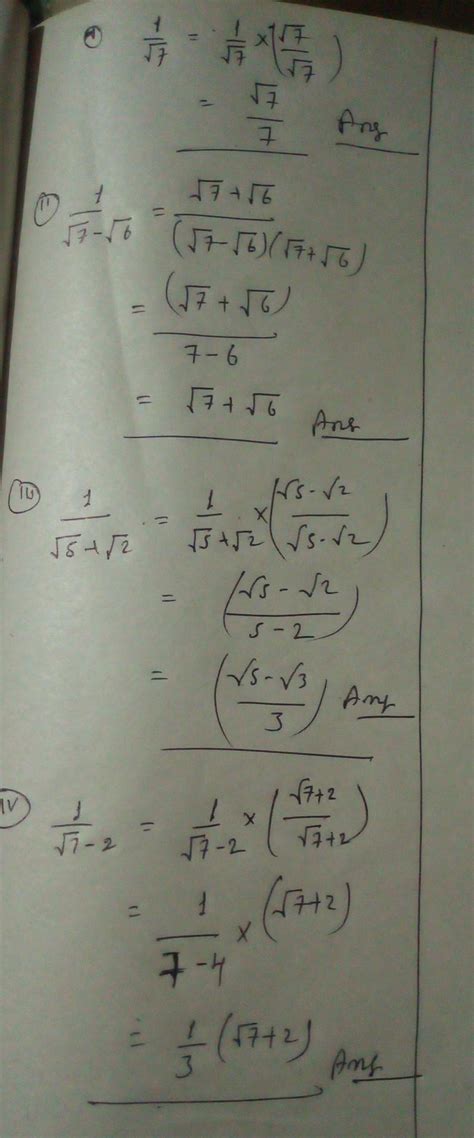 (i) 1/√7 = 1/√7 × (√7/√7)
= √7/7 Ans
(ii) 1/(√7-√6) = (√7+√6)/((√7-√6)(√7+√6))
= (√7+√6)/(7-6)
= √7+√6 Ans
(iii) 1/(√5+√2) = 1/(√5+√2) × ((√5-√2)/(√5-√2))
= ((√5-√2)/(5-2))
= ((√5-√3)/3) Ans
(iv) 1/(√7-2) = 1/(√7-2) × ((√7+2)/(√7+2))
= 1/(7-4) × (√7+2)
= 1/3 (√7+2) Ans